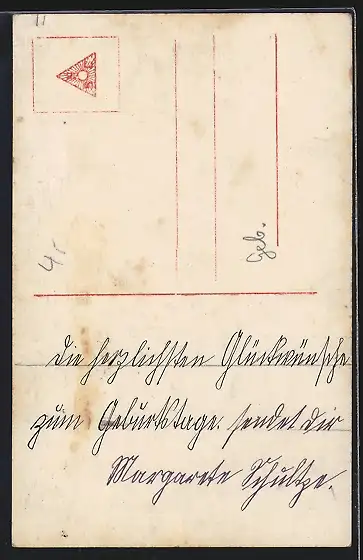 4,-
Geb.
die herzlichsten Glückwünsche
zum Geburtstage. sendet dir
Margarete Schultze.